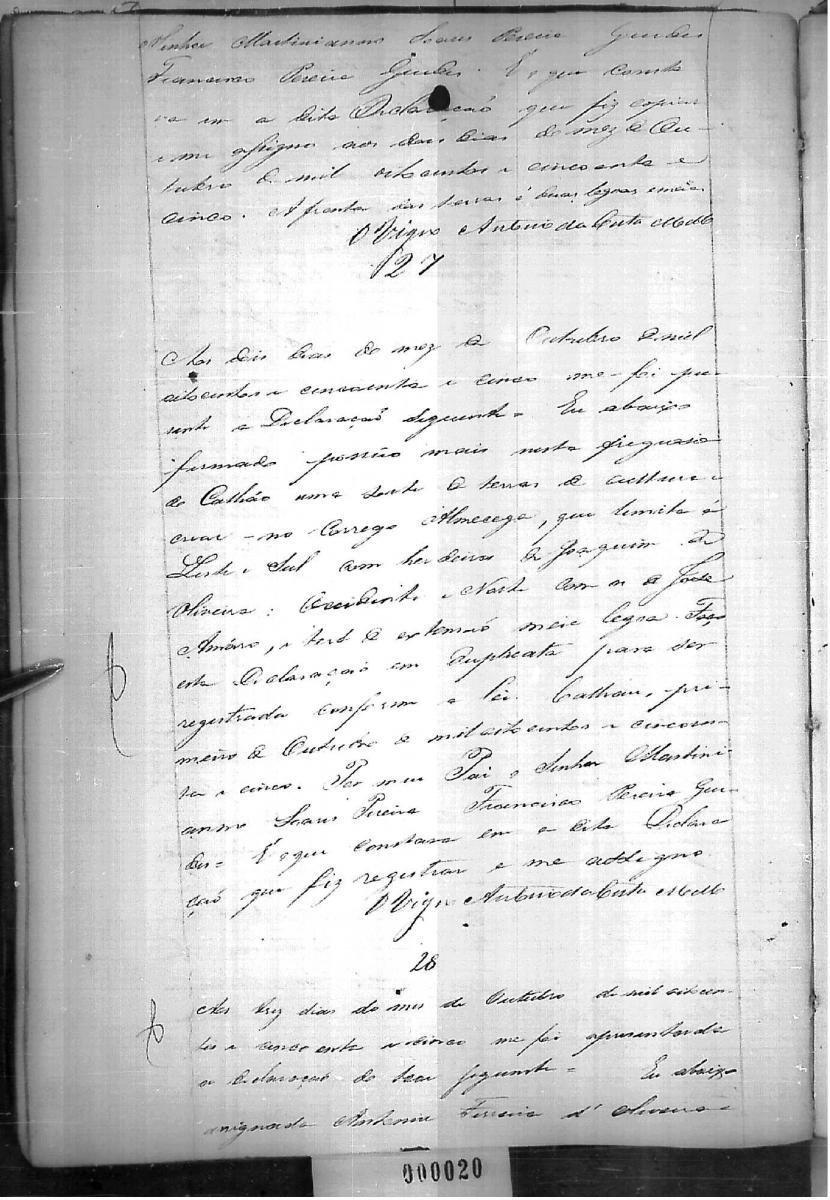 Senhor Martinianno Soares Pereira Guedes
Francisco Pereira Guedes. É o que consta
va em a dita Declaração que fiz copiar
e me assigno aos dous dias do mez de Ou-
tubro de mil oitocentos e cincoenta e
cinco. A frente das terras é duas legoas e meia
O Vigrº Antonio da Costa Mello
27
Aos dois dias do mez de Outubro de mil
oitocentos e cincoenta e cinco me foi pre
sente a Declaração seguinte = Eu abaixo
firmado possuo mais nesta freguesia
do Calhão uma sorte de terras de cultura e
criar - no Corrego Almecega, que limita á
Leste e Sul com herdeiros de Joaquim de
Oliveira: Occidente e Norte com os de José
Amáro, e terá de extensão meia legoa. Faço
esta Declaração em duplicata para ser
registrada conforme a lei. Calhau, pri-
meiro de Outubro de mil oitocentos e cincoen
ta e cinco. Por meu Pai o Senhor Martini-
anno Soares Pereira Francisco Pereira Gue
des = É o que constava em a dita Declara
ção que fiz registrar e me assigno
O Vigrº Antonio da Costa Mello
28
Aos trez dias do mes de Outubro de mil oitocen-
tos e cincoenta e cinco me foi apresentada
a declaração do teor seguinte = Eu abaixo
assignado Antonio Ferreira d'Oliveira
000020